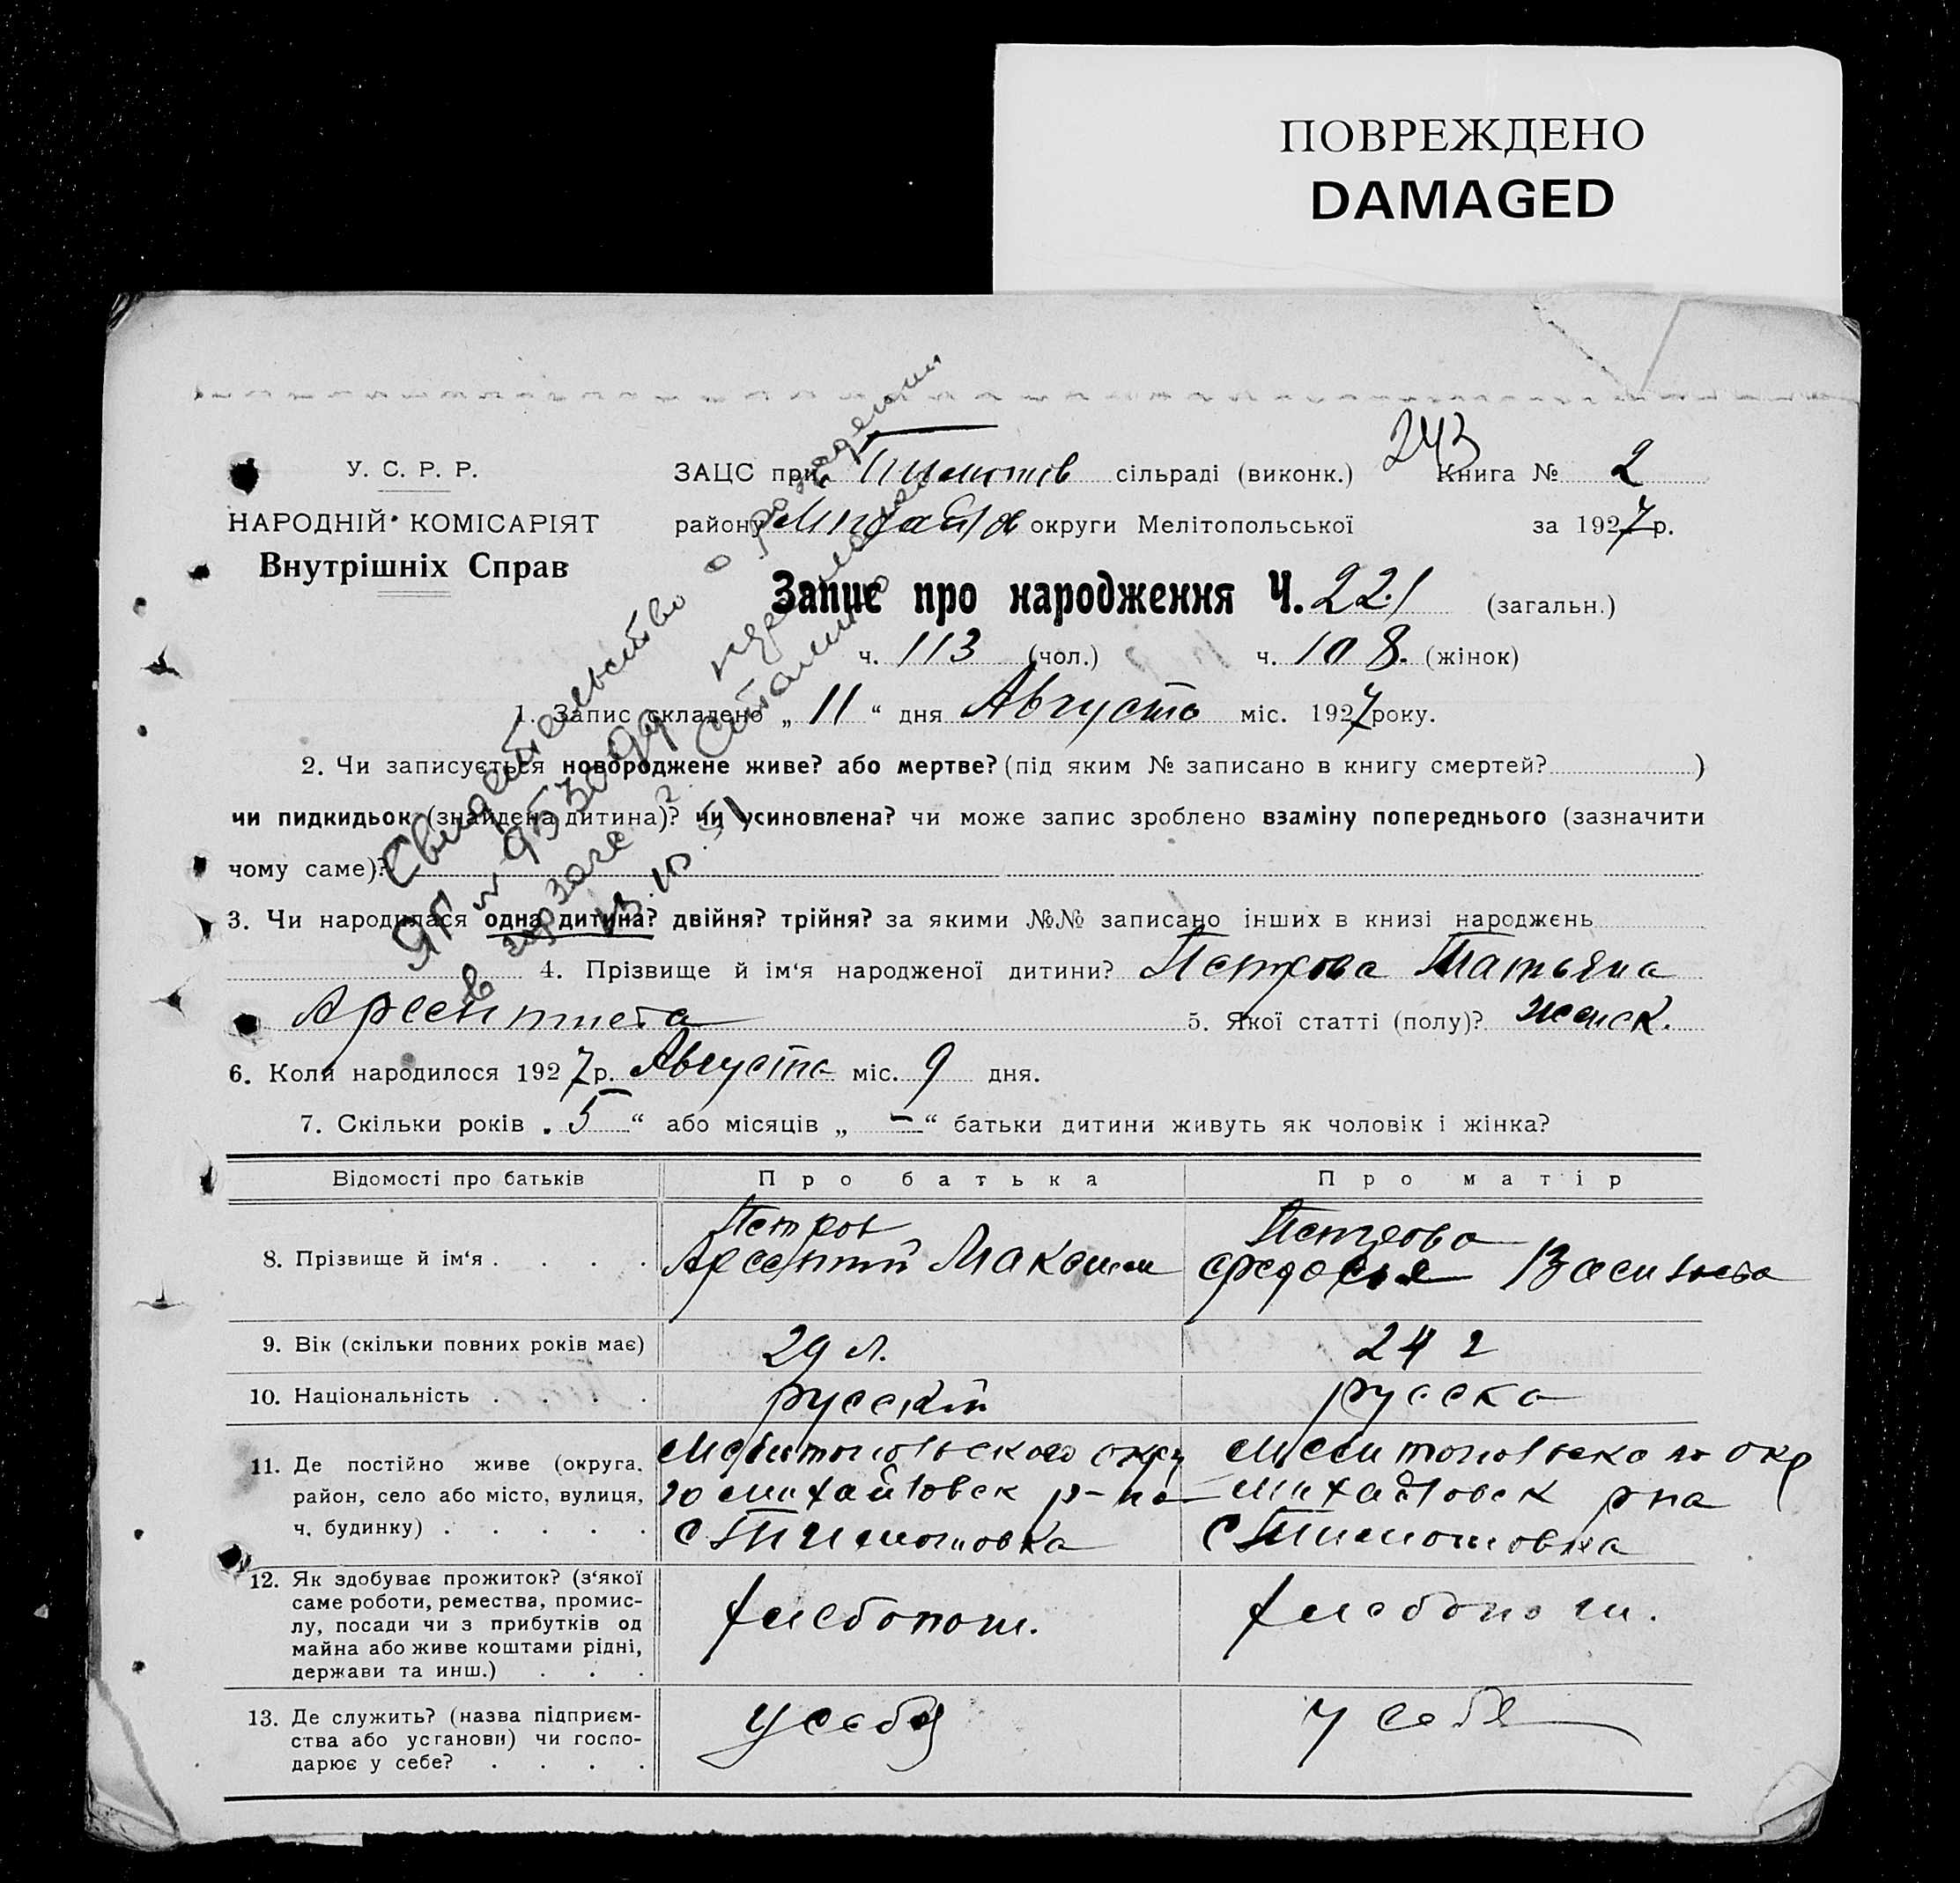 ПОВРЕЖДЕНО
DAMAGED
У. С. Р. Р.
НАРОДНІЙ КОМІСАРІЯТ
Внутрішніх Справ
243
ЗАЦС при Тимошов сільраді (виконк.) Книга № 2
району Михайлов округи Мелітопольської за 1927 р.
Запис про народження Ч. 221 (загальн.)
ч. 113 (чол.) ч. 108. (жінок)
1. Запис складено „ 11 “ дня Августа міс. 1927 року.
2. Чи записується новороджене живе? або мертве? (під яким № записано в книгу смертей? )
чи пидкидьок (знайдена дитина)? чи усиновлена? чи може запис зроблено взаміну попереднього (зазначити
чому саме)?
Свидетельство о рождении
ЯГ № 953099
в
3. Чи народилася одна дитина? двійня? трійня? за якими №№ записано інших в книзі народжень
4. Прізвище й ім‘я народженої дитини? Петрова Татьяна
5. Якої статті (полу)? женск.
6. Коли народилося 1927 р. Августа міс. 9 дня.
7. Скільки років „ 5 “ або місяців „ – “ батьки дитини живуть як чоловік і жінка?
Відомості про батьків Про батька Про матір
8. Прізвище й ім‘я . . . . Петров Арсентий Максим Петрова Федосья Васильева
9. Вік (скільки повних років має) 29 л. 24 г
10. Національність . . . . русский русска
11. Де постійно живе (округа, Мелитопольского окру Мелитопольского окр
район, село або місто, вулиця, го Михайловск р-на Михайловск р на
ч. будинку) . . . . . с Тимошовка с Тимошовка
12. Як здобуває прожиток? (з‘якої
саме роботи, ремества, промис-
лу, посади чи з прибутків од хлебопаш. хлебопаш.
майна або живе коштами рідні,
держави та инш.) . . .
13. Де служить? (назва підприєм-
ства або установи) чи госпо- у себя у себя
дарює у себе? . . . .